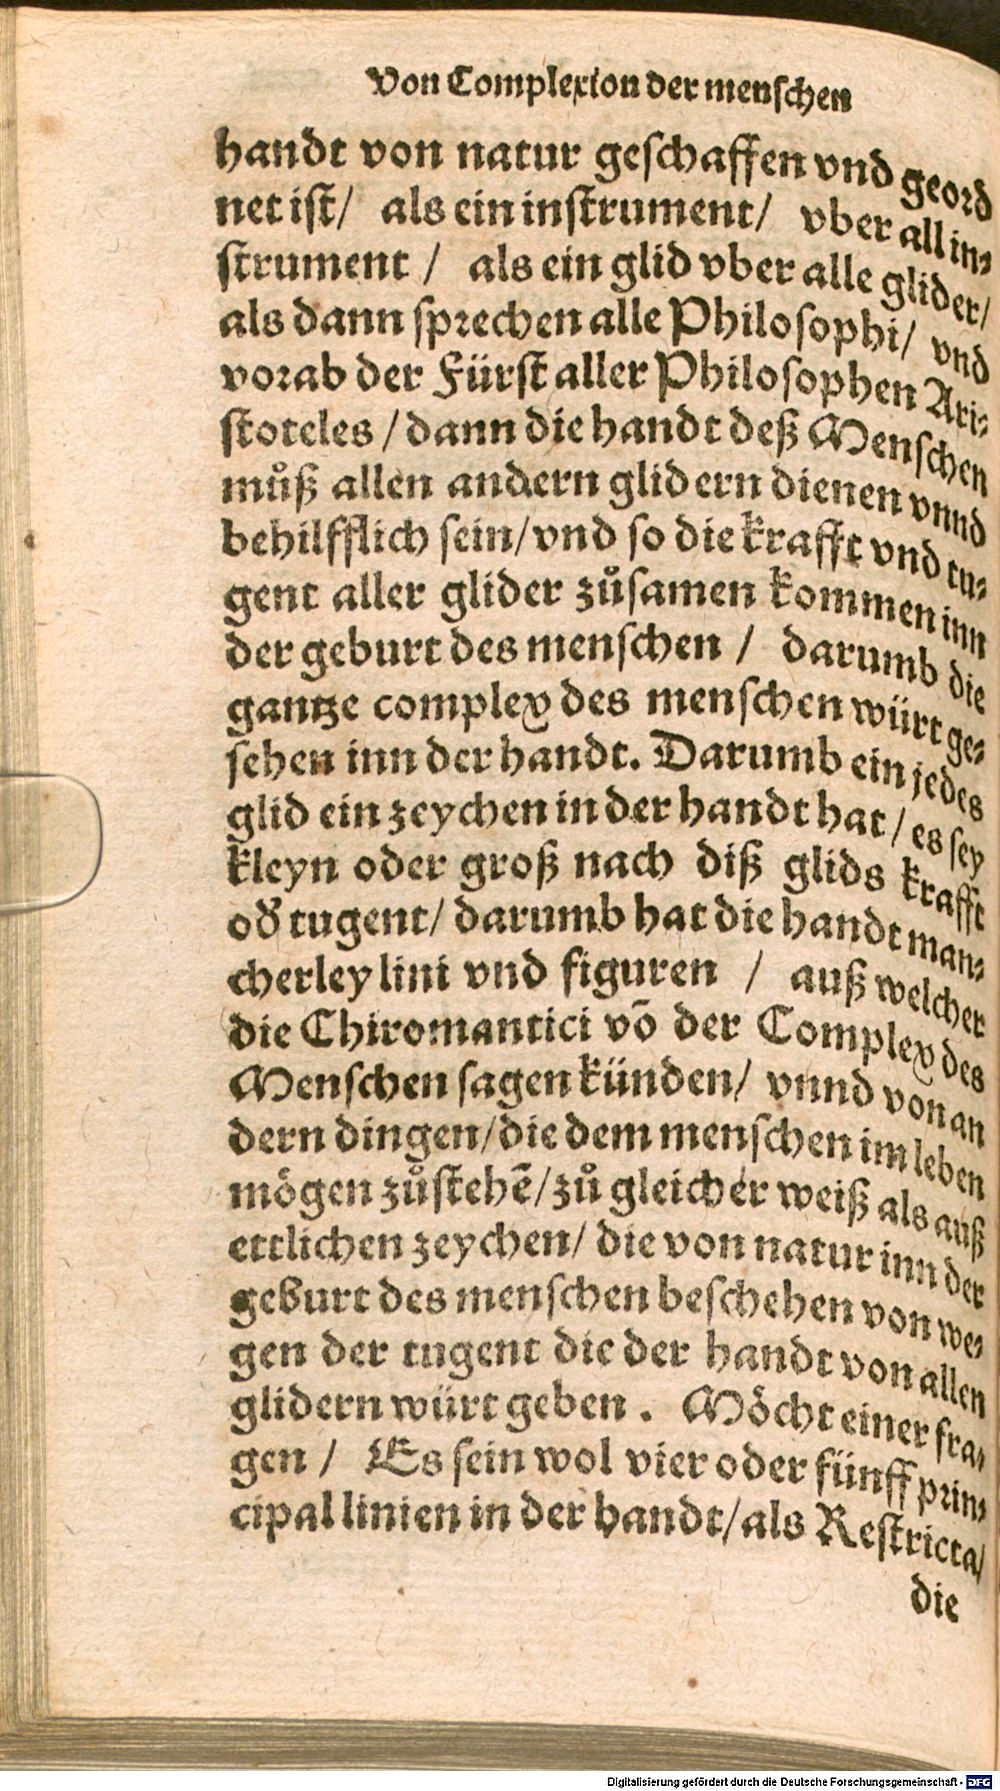 Von Complexion der menschen
handt von natur geschaffen vnd geord
net ist/ als ein instrument/ vber all in⸗
strument / als ein glid vber alle glider/
als dann sprechen alle Philosophi/ vnd
vorab der Fürst aller Philosophen Ari⸗
stoteles / dann die handt deß Menschen
můß allen andern glidern dienen vnnd
behilfflich sein/ vnd so die krafft vnd tu⸗
gent aller glider zůsamen kommen inn
der geburt des menschen / darumb die
gantze complex des menschen würt ge⸗
sehen inn der handt. Darumb ein jedes
glid ein zeychen in der handt hat / es sey
kleyn oder groß nach diß glids krafft
oď tugent/ darumb hat die handt man⸗
cherley lini vnd figuren / auß welcher
die Chiromantici võ der Complex des
Menschen sagen künden/ vnnd von an
dern dingen/ die dem menschen im leben
mögen zůstehẽ/ zů gleicher weiß als auß
ettlichen zeychen/ die von natur inn der
geburt des menschen beschehen von we⸗
gen der tugent die der handt von allen
glidern würt geben . Möcht einer fra⸗
gen / Es sein wol vier oder fünff prin⸗
cipal linien in der handt/ als Restricta/
die
Digitalisierung gefördert durch die Deutsche Forschungsgemeinschaft - DFG